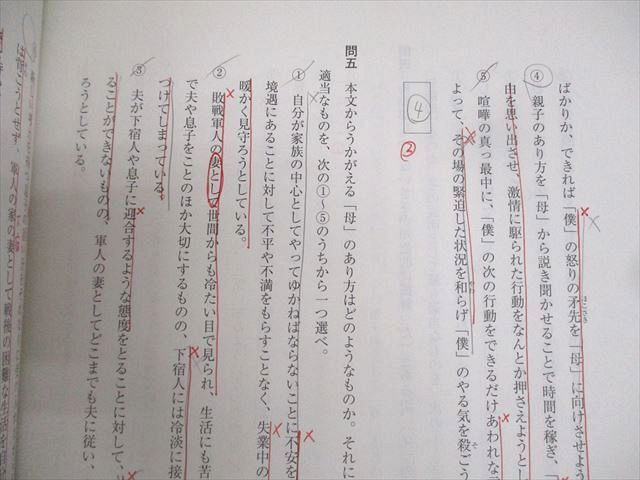 ばかりか、できれば「僕」の怒りの矛先を「母」に向けさせよう
④ 親子のあり方を「母」から説き聞かせることで時間を稼ぎ、「
由を思い出させ、激情に駆られた行動をなんとか押さえようとし
⑤ 喧嘩の真っ最中に、「僕」の次の行動をできるだけあわれな
よって、その場の緊迫した状況を和らげ「僕」のやる気を殺ごう
④
②
問五 本文からうかがえる「母」のあり方はどのようなものか。それに
適当なものを、次の①~⑤のうちから一つ選べ。
① 自分が家族の中心としてやってゆかねばならないことに不安を
境遇にあることに対して不平や不満をもらすことなく、失業中の
暖かく見守ろうとしている。
② 敗戦軍人の妻として世間からも冷たい目で見られ、生活にも苦
で夫や息子をことのほか大切にするものの、下宿人には冷淡に接
つけてしまっている。
③ 夫が下宿人や息子に迎合するような態度をとることに対して、
ることができないものの、軍人の妻としてどこまでも夫に従い、
ろうとしている。
は言こうとせず、軍人の家の妻として戦後の困難な生活を